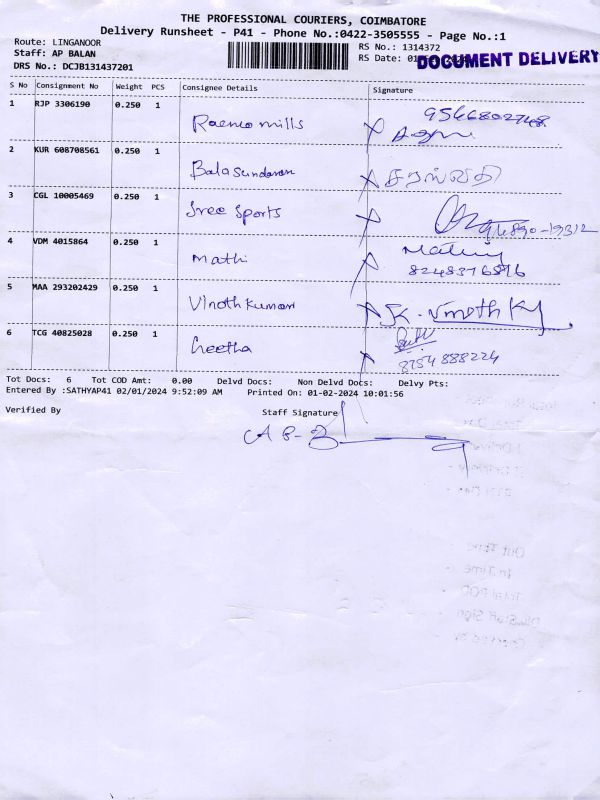 THE PROFESSIONAL COURIERS, COIMBATORE
Delivery Runsheet - P41 - Phone No.:0422-3505555 - Page No.:1
Route: LINGANOOR
RS No.: 1314372
Staff: AP BALAN
RS Date: 01
DOCUMENT DELIVERY
DRS No.: DCJB131437201
S No Consignment No Weight PCS Consignee Details Signature
1 RJP 3306190 0.250 1 mills 9566802748
2 KUR 608708561 0.250 1 Balasundaram
3 CGL 10005469 0.250 1 Sree Sports
4 VDM 4015864 0.250 1 Mathi
5 MAA 293202429 0.250 1 Vinoth kumar K. Vinoth
6 TCG 40825028 0.250 1 Geetha
8754 888224
Tot Docs: 6 Tot COD Amt: 0.00 Delvd Docs: Non Delvd Docs: Delvy Pts:
Entered By :SATHYAP41 02/01/2024 9:52:09 AM Printed On: 01-02-2024 10:01:56
Verified By Staff Signature